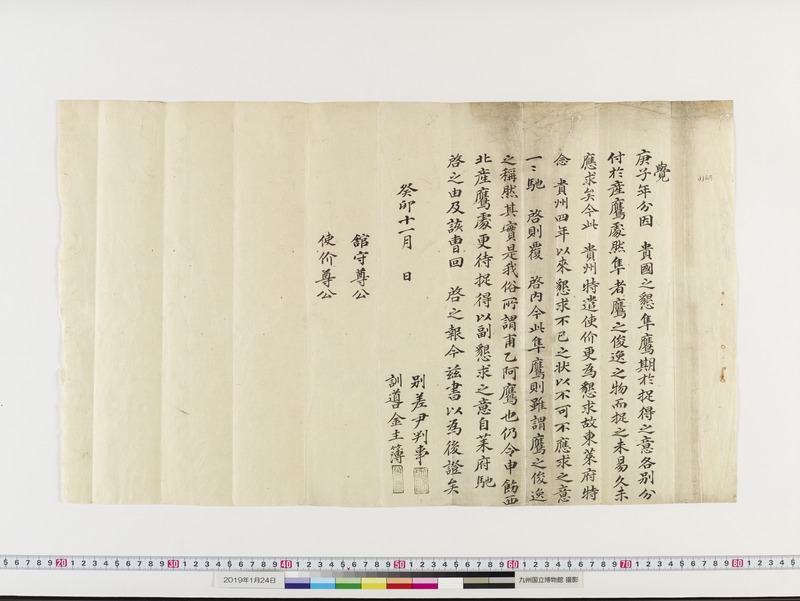 覺
庚子年分因　貴國之懇隼鷹期於捉得之意各別分
付於産鷹處然隼者鷹之俊逸之物而捉之未易久未
應求矣今此　貴州特遣使价更為懇求故東萊府特
念　貴州四年以來懇求不已之状以不可不應求之意
一〻馳　啓則覆　啓内今此隼鷹則雖謂鷹之俊逸
之稱然其實是我俗所謂甫乙阿鷹也仍令申飭西
北産鷹處更待捉得以副懇求之意自萊府馳
啓之由及該曹回　啓之報今茲書以為後證矣
癸卯十一月　日
別差尹判事
訓導金主簿
舘守尊公
使价尊公
2019年1月24日
九州国立博物館 撮影